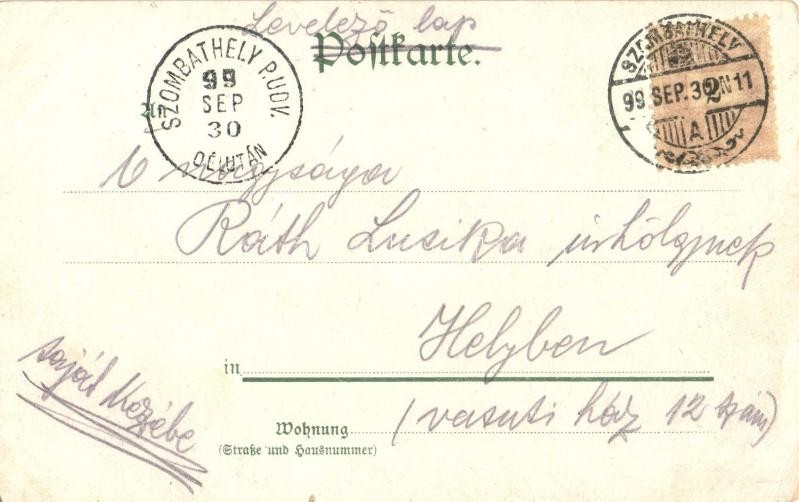 Levelező lap
Postkarte.
SZOMBATHELY PU.DV.
99
SEP
30
DÉLUTÁN
SZOMBATHELY
99 SEP. 30 N 11
A
2
An
Ő nagysága
Ráth Lusika úrhölgynek
Helyben
in
saját kezébe
(vasuti ház 12 szám)
Wohnung
(Straße und Hausnummer)